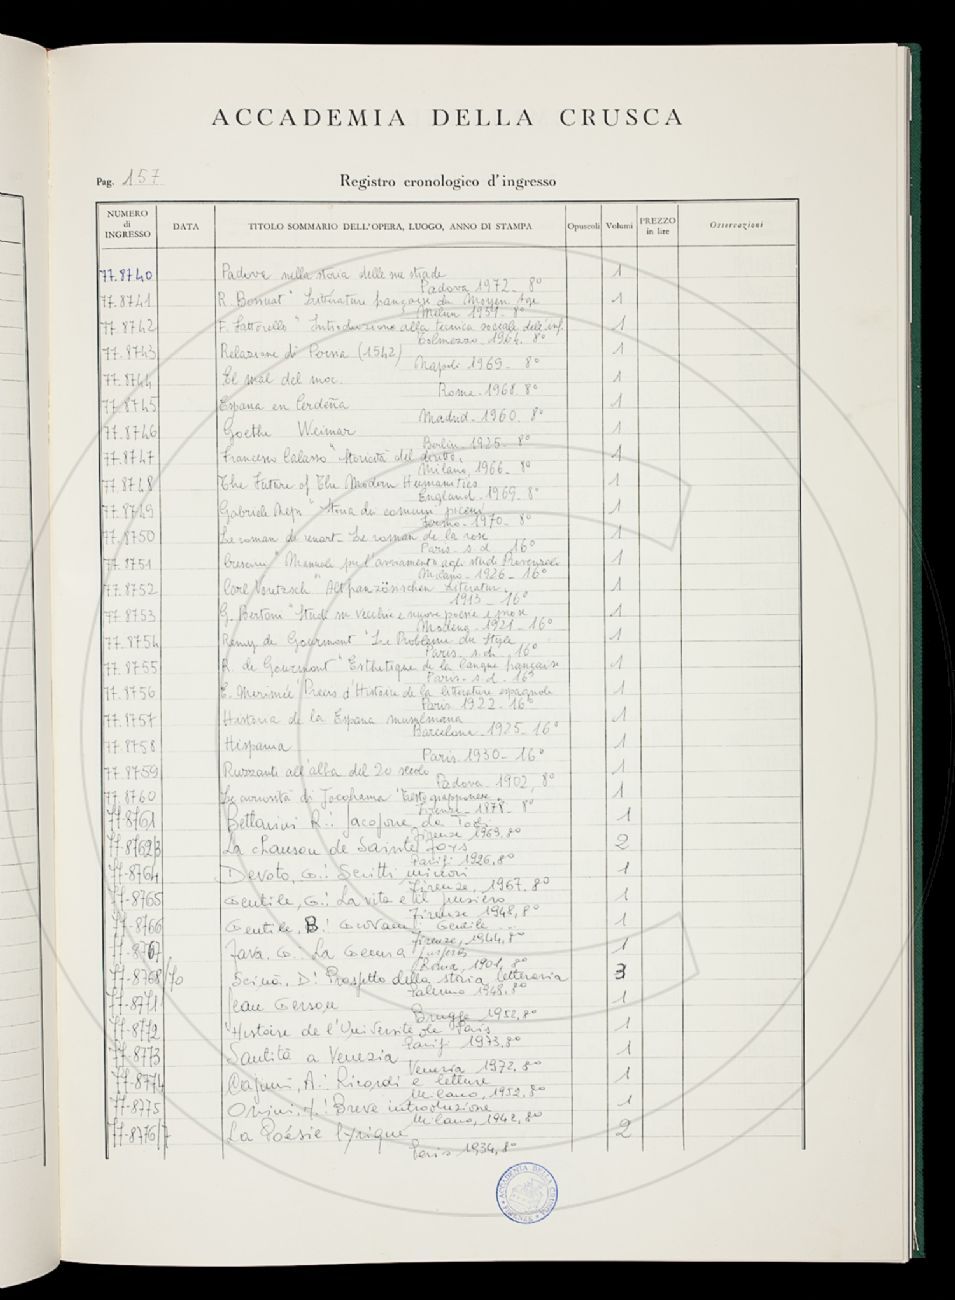 ACCADEMIA DELLA CRUSCA
Pag. 157
Registro cronologico d'ingresso
NUMERO di INGRESSO DATA TITOLO SOMMARIO DELL'OPERA, LUOGO, ANNO DI STAMPA Opuscoli Volumi PREZZO in lire Osservazioni
77.8740 Padova nella storia delle sue strade 1
Padova 1972 - 8°
77.8741 R. Bossuat "Littérature française du Moyen Age 1
Melun 1951 - 8°
77.8742 F. Fattorello "Introduzione alla tecnica sociale dell'inf. 1
Tolmezzo - 1964. 8°
77.8743 Relazione di Roma (1542) 1
Napoli 1969 - 8°
77.8744 El mal del moc. 1
Roma - 1968 8°
77.8745 Espana en Cerdeña 1
Madrid - 1960. 8°
77.8746 Goethe Weimar 1
Berlin - 1925 - 8°
77.8747 Francesco Calasso "Storicità del diritto. 1
Milano, 1966 - 8°
77.8748 The Future of The Modern Humanities 1
England - 1969 - 8°
77.8749 Gabriele Nepi "Storia dei comuni piceni 1
Fermo - 1970 - 8°
77.8750 Le roman de renart - Le roman de la rose 1
Paris - s.d. 16°
77.8751 Crescini "Manuale per l'avviamento agli studi Provenzali 1
Milano - 1926 - 16°
77.8752 Carl Voretzsch "Altfranzösischen Literatur. 1
1913 - 16°
77.8753 G. Bertoni "Studi su vecchie e nuove poesie e prose 1
Modena - 1921 - 16°
77.8754 Remy de Gourmont "Le Problème du Style 1
Paris - s.d. 16°
77.8755 R. de Gourmont "Esthetique de la langue française 1
Paris - s.d. 16°
77.8756 E. Merimée "Precis d'Histoire de la litterature espagnole 1
Paris 1922 - 16°
77.8757 Historia de la Espana musulmana 1
Barcelona - 1925 - 16°
77.8758 Hispania 1
Paris - 1930 - 16°
77.8759 Ruzzanti all'alba del 20 secolo 1
Padova - 1902, 8°
77.8760 Le curiosità di Jocohama "Testo giapponese" 1
Firenze - 1878 - 8°
77-8761 Bettarini R.: Jacopone da Todi 1
Firenze 1969, 8°
77-8762/3 La chanson de Sainte Foys 2
Parigi 1926, 8°
77-8764 Devoto, G.: Scritti minori 1
Firenze, 1967. 8°
77-8765 Gentile, G.: La vita e il pensiero 1
Firenze 1948, 8°
77-8766 Gentile, B.: Giovanni Gentile 1
Firenze, 1944, 8°
77-8767 Fava, G.: La Gemma 1
Roma, 1901, 8°
77-8768/70 Scinà, D: Prospetto della storia letteraria 3
Palermo 1948, 8°
77-8771 Jean Gerson 1
Brugge 1952, 8°
77-8772 Histoire de l'Université de Paris 1
Parigi 1973, 8°
77-8773 Santità a Venezia 1
Venezia 1972, 8°
77-8774 Cajumi, A.: Ricordi e letture 1
Milano, 1952, 8°
77-8775 Orsini, F.: Breve introduzione 1
Milano, 1942, 8°
77-8776/7 La Poésie lyrique 2
Paris 1934, 8°
ACCADEMIA DELLA CRUSCA
FIRENZE